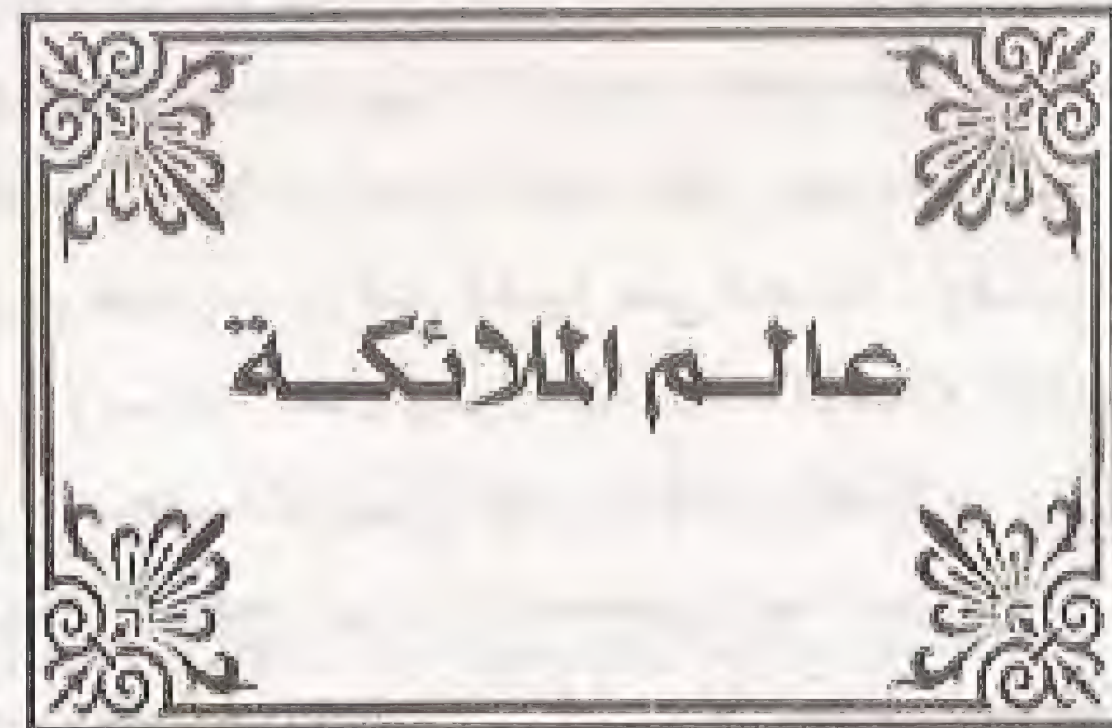 عالم الملائكة